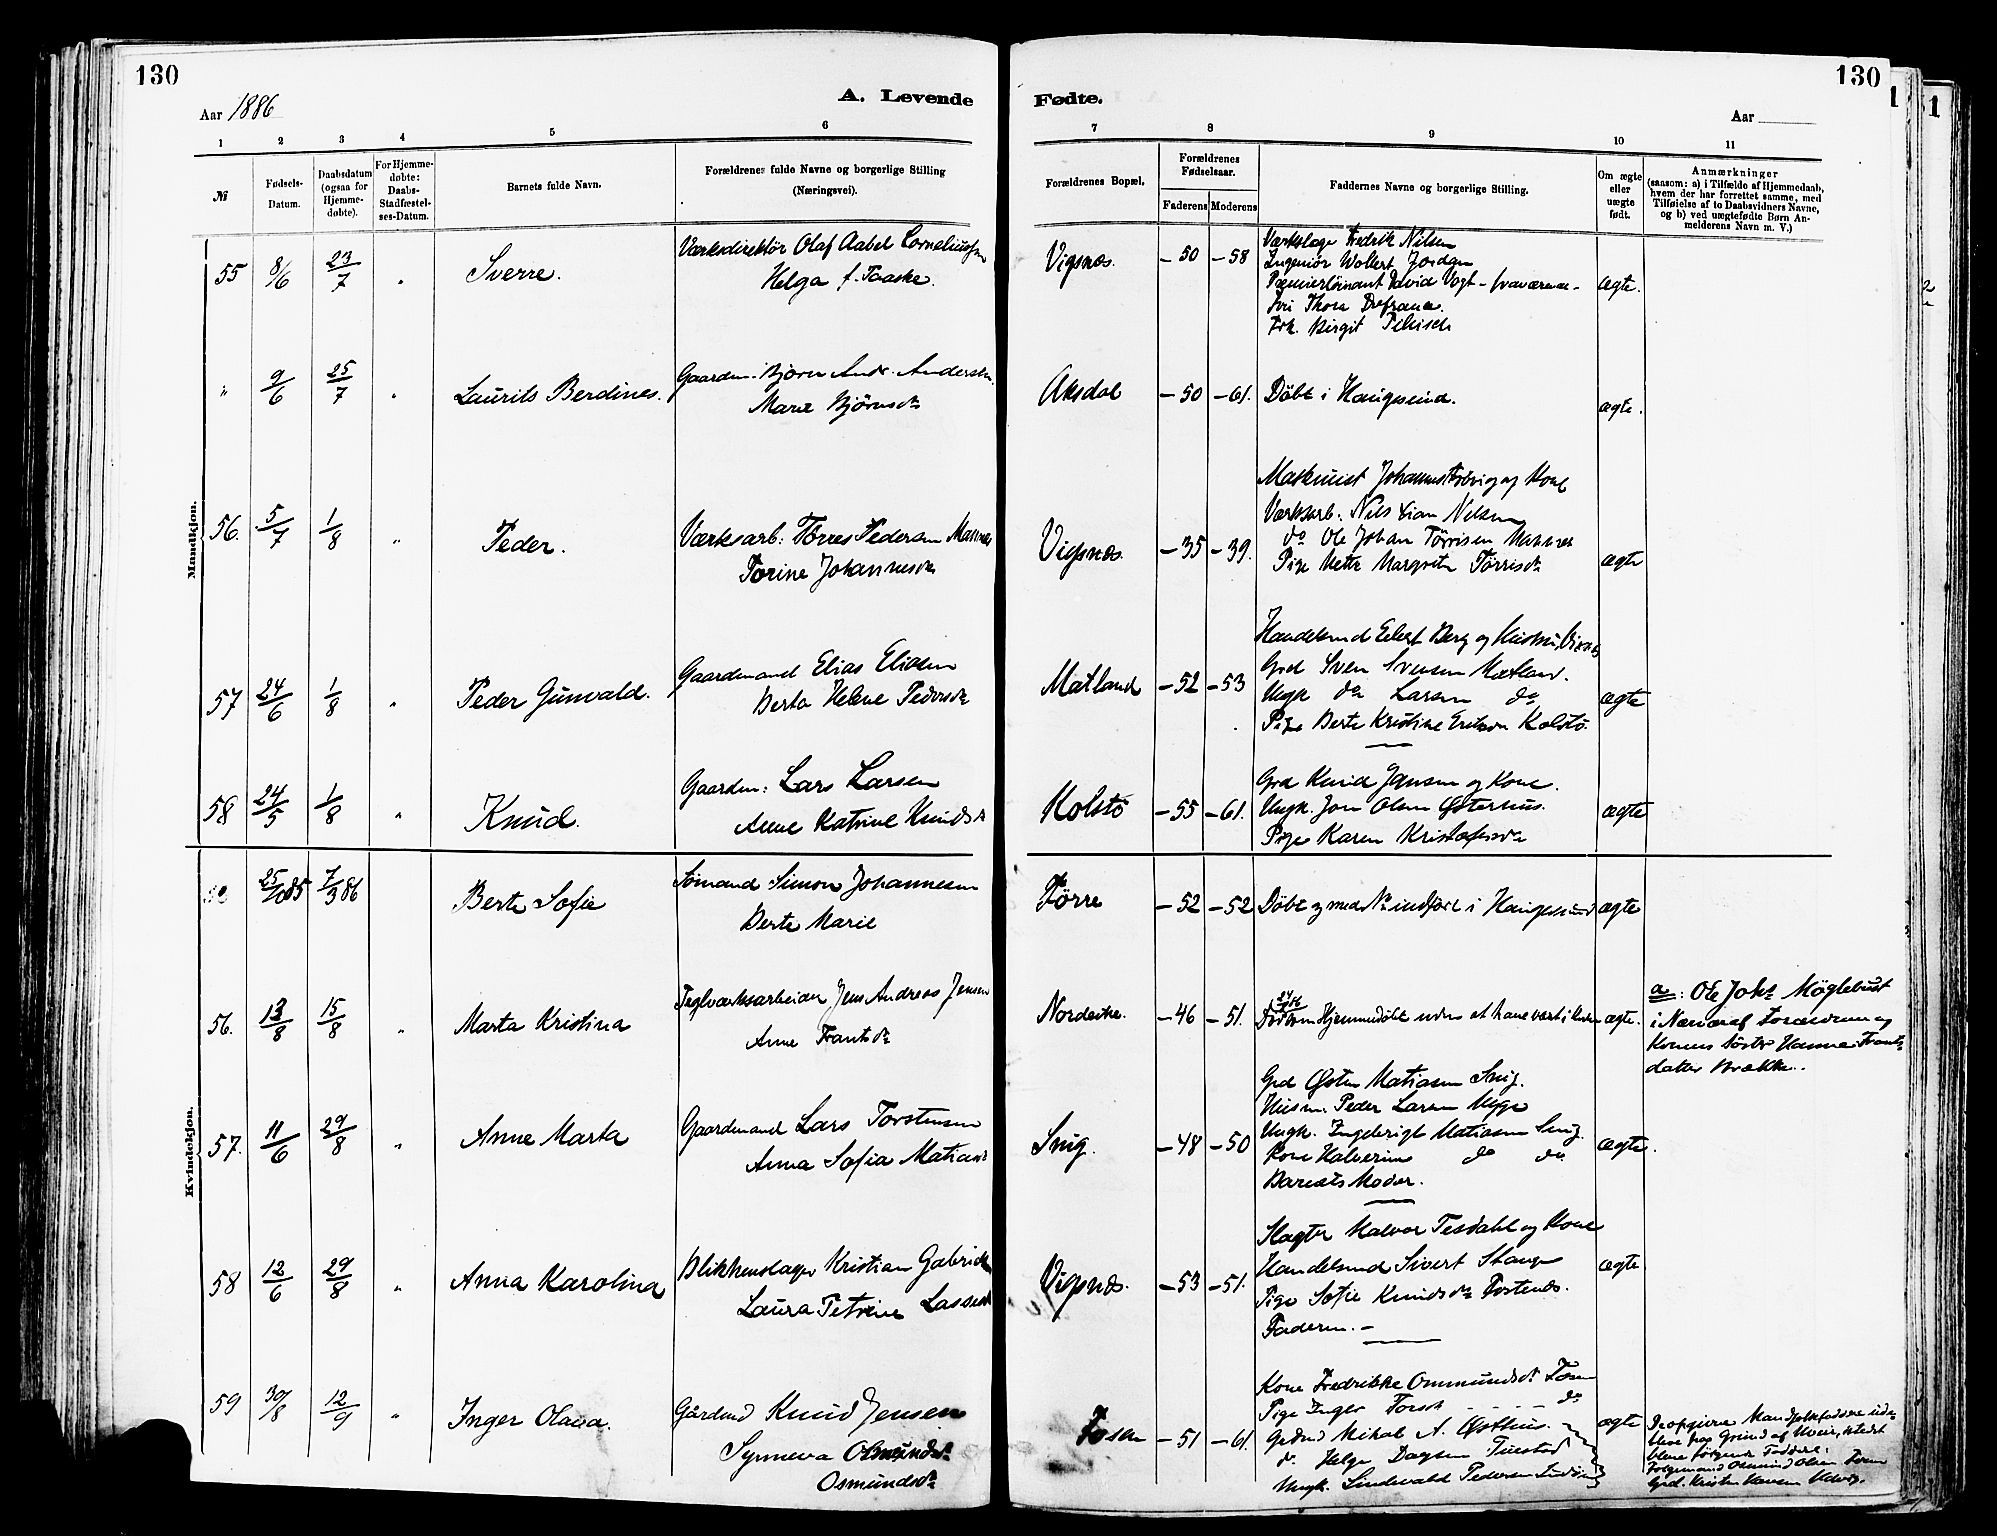 130
130
Aar 1886
A. Levende
Fødte.
Aar
1 2 3 4 5 6 7 8 9 10 11
№
Fødsels-
Datum.
Daabsdatum
(ogsaa for
Hjemme-
døbte).
For Hjemme-
døbte:
Daabs-
Stadfæstel-
ses-Datum.
Barnets fulde Navn.
Forældrenes fulde Navne og borgerlige Stilling
(Næringsvei).
Forældrenes Bopæl,
Forældrenes
Fødselsaar.
Faderens
Moderens
Faddernes Navne og borgerlige Stilling.
Om ægte
eller
uægte
født.
Anmærkninger
(saasom: a) i Tilfælde af Hjemmedaab,
hvem der har forrettet samme, med
Tilføielse af to Daabsvidners Navne,
og b) ved uægtefødte Børn An-
melderens Navn m. V.)
Mandkjøn.
55 8/6 23/7 " Sverre.
Værksdirektør Olaf Aabel Corneliussen
Helga f. Faaske.
Vigsnæs. -50 -58
Værkslæge Fredrik Nilsen
Ingeniør Wollert Jordan
Premierløinant David Vogt - fraværende -
Thora
Frk. Birgit
ægte.
" 9/6 25/7 " Laurits Berdines.
Gaardm. Bjørn Andr. Andersen
Marie Bjørnsdr
Aksdal -50 -61. Döbt i Haugesund. ægte.
56. 5/7 1/8 " Peder.
Værksarb: Tørres Pedersen Mannes
Torine Johannesdr
Vigsnæs. -35 -39.
Maskinist Johannes og Kone
Værksarb. Nils Nilsen
do Ole Johan Tørrisen Mannes
Pige Mette Margrete Tørrisdr
ægte
57 24/6 1/8 " Peder Gunvald.
Gaardmand Elias Eliasen
Berta Helene Pedersdr
Matland -52 -53
Handelsmd Berg og Hustru,
Grd Sven Svensen Matland.
Ungk do Larsen do
Pige Berte Kristine Kolstö.
ægte
58 24/5 1/8 " Knud.
Gaardm: Lars Larsen
Anne Katrine Knudsdr
Kolstö -55 -61.
Grd Knud Jensen og Kone.
Ungk. Jon Olsen Østerhus.
Pige Karen Kristofersdr
ægte
Kvindekjøn.
25/ 85 7/3 86 Berte Sofie
Sömand Simon Johannesen
Berte Marie
Førre -52 -52 Döbt og med No indført i Haugesund ægte
56. 13/8 15/8 " Marta Kristina
Teglværksarbeider Jens Andreas Jensen
Anne Frantsdr
Nordvike. -46 -51. Hjemmedöbt uden at have vært i Kirken ægte.
a: Ole Johs Møglebust
i Nærvær af Forældrene og
Konens Søster Hanna Frants-
datter Brække.
57. 11/6 29/8 " Anne Marta
Gaardmand Lars Torstensen
Anna Sofia Matiasdr
Snig. -48 -50
Grd Østen Matiasen Snig.
Husm. Peder Larsen
Ungk. Ingebrigt Matiasen Snig.
Kone Halverine do do
Barnets Moder.
ægte.
58 12/6 29/8 " Anna Karolina
Blikkenslager Kristian Gabrielsen
Laura Petrine Lassedr
Vigsnæs. -53 -51.
Slagter Halvor Tesdahl og Kone
Handelsmd Sivert Stange
Pige Sofie Knudsdr
Faderen. -
ægte
59 30/8 12/9 " Inger Olava.
Gårdmd Knud Jensen
Synneva Osmundsdr
Osmundsdr
Fosen -51 -61.
Kone Fredrikke Ommundsdr Fosen
Pige Inger Fosen - - - - do
Grdmd Mikal A. Østhus.
do. Helge Dagsen
Ungk. Lindevald Pedersen
ægte
De opgivne Mandfolkfaddere ude-
bleve paa Grund af Uveir, istedet
bleve følgende Faddere:
Osmund Olsen Fosen
Grd. Kristen Hansen